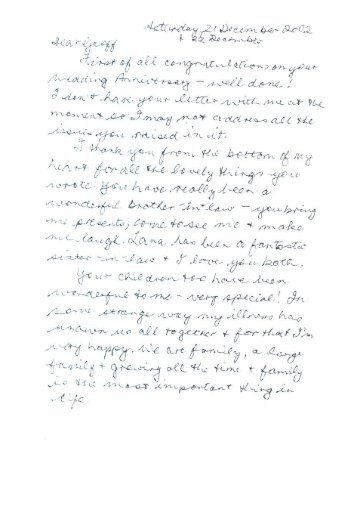 Saturday 21 December 2002
& 22 December
Dear Geoff
First of all congratulations on your
wedding Anniversary - well done!
I don't have your letter with me at the
moment so I may not address all the
issues you raised in it.
I thank you from the bottom of my
heart for all the lovely things you
wrote. You have really been a
wonderful brother-in-law - you bring
me presents, come to see me & make
me laugh. Lana has been a fantastic
sister-in-law & I love you both.
Your children too have been
wonderful to me - very special! In
some strange way my illness has
drawn us all together & for that I'm
very happy. We are family, a large
family & growing all the time & family
is the most important thing in
life.